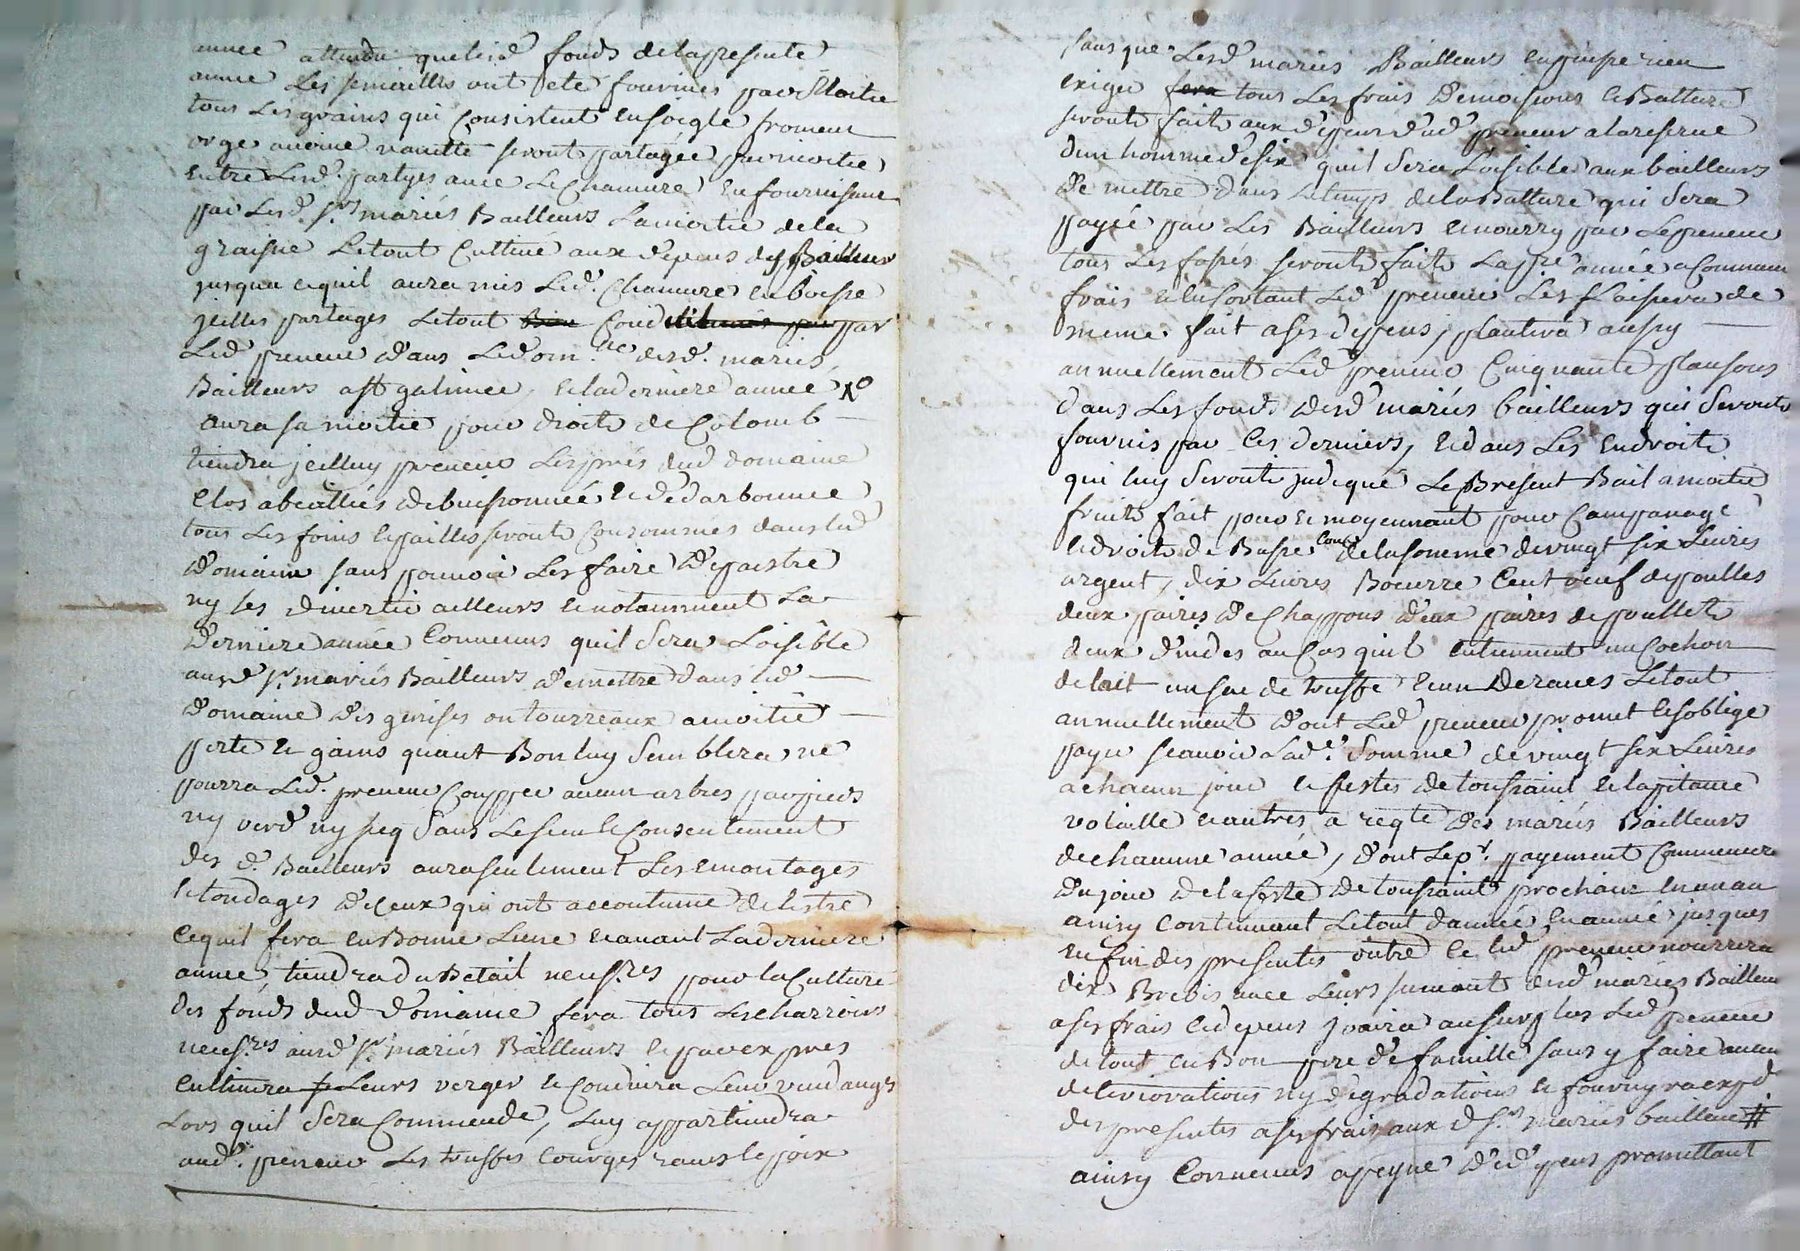 année attendu que lesd fonds de la presente
année Les semailles ont été fournies par Moitie
tous Les grains qui Consistent en soigle froment
orge avenne navette seront partagée par moitie
entre Lesd. partyes avec Le Chanvre en fournissant
par Lesd. srs mariés Bailleurs La moitie de la
graisne Le tout Cultivé aux depens des Bailleur
jusqua ce quil aura mis Led. Chanvre en boesse
jeilles partages Le tout par
Led preneur dans Led om.ne desd. mariés
Bailleurs ast galinee, et la derniere année xo
aura sa moitie pour droits de Colomb
tiendra jcelluy preneur Les prés dud domaine
Clos abeallies de buissonnée et de darbonnée
tous Les foins et pailles seront Consommés dans led
domaine sans pouvoir Les faire depaistre
ny les divertir ailleurs et notamment La
derniere année Convenus quil Sera Loisible
auxd srs mariés Bailleurs de mettre dans led
domaine des genises ou tourreaux a moitié
perte et gains quant Bon luy Semblera, ne
pourra Led. preneur Coupper aucun arbres par pieds
ny verd ny seq Sans Le sceu et Consentement
des d. Bailleurs aura seulement Les emontages
et tondages de Ceux qui ont accoutumé de lestre
Ce quil fera en Bonne Lune et avant La derniere
année, tiendra du Betail necess.res pour la Culture
des fonds dud domaine fera tous Les charrois
necess.res auxd srs mariés Bailleurs et par exprès
Cultivera Leurs verger et Conduira Leur vendanges
Lors quil Sera Commendé, Luy appartiendra
aud. preneur Les truffes Courges raves et poix
sans que Lesd mariés Bailleurs en puisse rien
exiger tous Les frais de moissons et Batture
seront fait aux depens dud preneur a la reserve
dun homme de six quil Sera Loisible aux bailleurs
de mettre dans le temps de la Batture qui Sera
payée par Les Bailleurs et nourry par Le preneur
tous Les fossés seront faits La p.re année a Commun
frais et en sortant Led preneur Les Laissera de
meme fait a ses depens, plantera aussy
annuellement Led preneur Cinquante plansons
dans Les fonds desd mariés bailleurs qui Seront
fournis par Ces derniers, et dans Les Endroits
qui luy Seront judiqué Le Present Bail a moitié
fruits fait pour et moyennant pour Campanage
et droits de Basse Cour de la somme de vingt six Livres
argent, dix Livres Boeurre Cent oeuf de poulles
deux paires de Chappons deux paires de poullets
deux dindes au Cas quil entiennent un Cochon
de lait un sac de truffe et un de raves Le tout
annuellement dont Led preneur promet et soblige
payer scavoir Lad.e Somme de vingt six Livres
a chacun jour et festes de toussaint et la pitance
volaille et autres a regte des mariés Bailleurs
de chacune année, dont Le pr. payement Commencera
du jour de la feste de toussaint prochain en un an
ainsy Continuant Le tout dannée en année jusques
en fin des presentes outre Ce led preneur nourrira
dix Brebis avec Leurs suivant desd mariés Bailleurs
a ses frais et depens joüira au surplus Led preneur
de tout en Bon pere de famille sans y faire aucun
deteriorations ny degradations et fournyra expd
des presentes a ses frais aux d srs mariés bailleur #
ainsy Convenus a peyne de td depens promettant